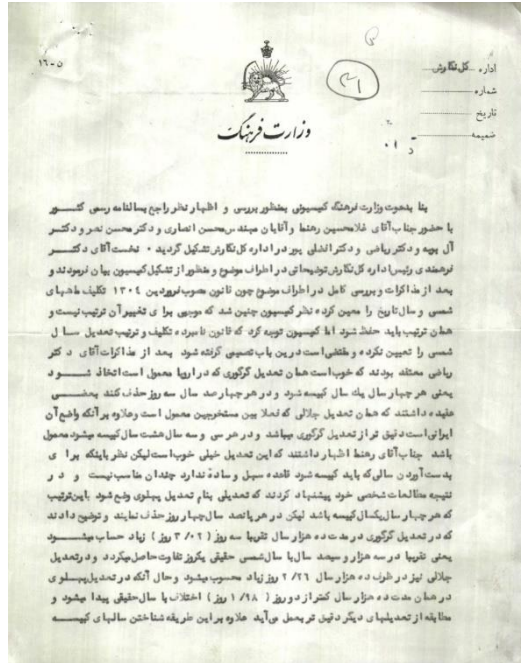 ۱۶-۵
۳۱
اداره کل نگارش
شماره
تاریخ
ضمیمه
وزارت فرهنگ
بنا بدعوت وزارت فرهنگ کمیسیونی بمنظور بررسی و اظهار نظر راجع بسالنامه رسمی کشور
با حضور جناب آقای غلامحسین رهنما و آقایان مهندس محسن انصاری و دکتر محسن نصر و دکتر
آل بویه و دکتر ریاضی و دکتر افضلی پور در اداره کل نگارش تشکیل گردید ۰ نخست آقای دکتر
فرهمندی رئیس اداره کل نگارش توضیحاتی در اطراف موضوع و منظور از تشکیل کمیسیون بیان فرمودند و
بعد از مذاکرات و بررسی کامل در اطراف موضوع چون قانون مصوب فروردین ۱۳۰۴ تکلیف ماههای
شمسی و سال تاریخ را معین کرده نظر کمیسیون چنین شد که موجبی برای تغییر آن ترتیب نیست و
همان ترتیب باید حفظ شود اما کمیسیون توجه کرد که قانون نامبرده تکلیف و ترتیب تعدیل سال
شمسی را تعیین نکرده و مقتضی است درین باب تصمیمی گرفته شود بعد از مذاکرات آقای دکتر
ریاضی معتقد بودند که خوب است همان تعدیل گرگوری که در اروپا معمول است اتخاذ شود
یعنی هر چهار سال یک سال کبیسه شود و در هر چهار صد سال سه روز حذف کنند بعضی
عقیده داشتند که همان تعدیل جلالی که فعلا بین مستخرجین معمول است وعلاوه بر آنکه واضع آن
ایرانی است دقیق تر از تعدیل گرگوری میباشد و در هر سی و سه سال هشت سال کبیسه میشود معمول
باشد جناب آقای رهنما اظهار داشتند که این تعدیل خیلی خوب است لیکن نظر باینکه برای
بدست آوردن سالی که باید کبیسه شود قاعده سهل و ساده ندارد چندان مناسب نیست و در
نتیجه مطالعات شخصی خود پیشنهاد کردند که تعدیلی بنام تعدیل پهلوی وضع شود باین ترتیب
که هر چهار سال یکسال کبیسه باشد لیکن در هر پانصد سال چهار روز حذف نمایند و توضیح دادند
که در تعدیل گرگوری در مدت ده هزار سال تقریبا سه روز ( ۳/۰۲ روز ) زیاد حساب میشود
یعنی تقریبا در سه هزار و سیصد سال با سال شمسی حقیقی یکروز تفاوت حاصل میگردد و در تعدیل
جلالی نیز در ظرف ده هزار سال ۲/۲۶ روز زیاد محسوب میشود و حال آنکه در تعدیل پهلوی
در همان مدت ده هزار سال کمتر از دو روز ( ۱/۹۸ روز ) اختلاف با سال حقیقی پیدا میشود و
مطابقه از تعدیلهای دیگر دقیق تر بعمل می‌آید علاوه بر این طریقه شناختن سالهای کبیسه